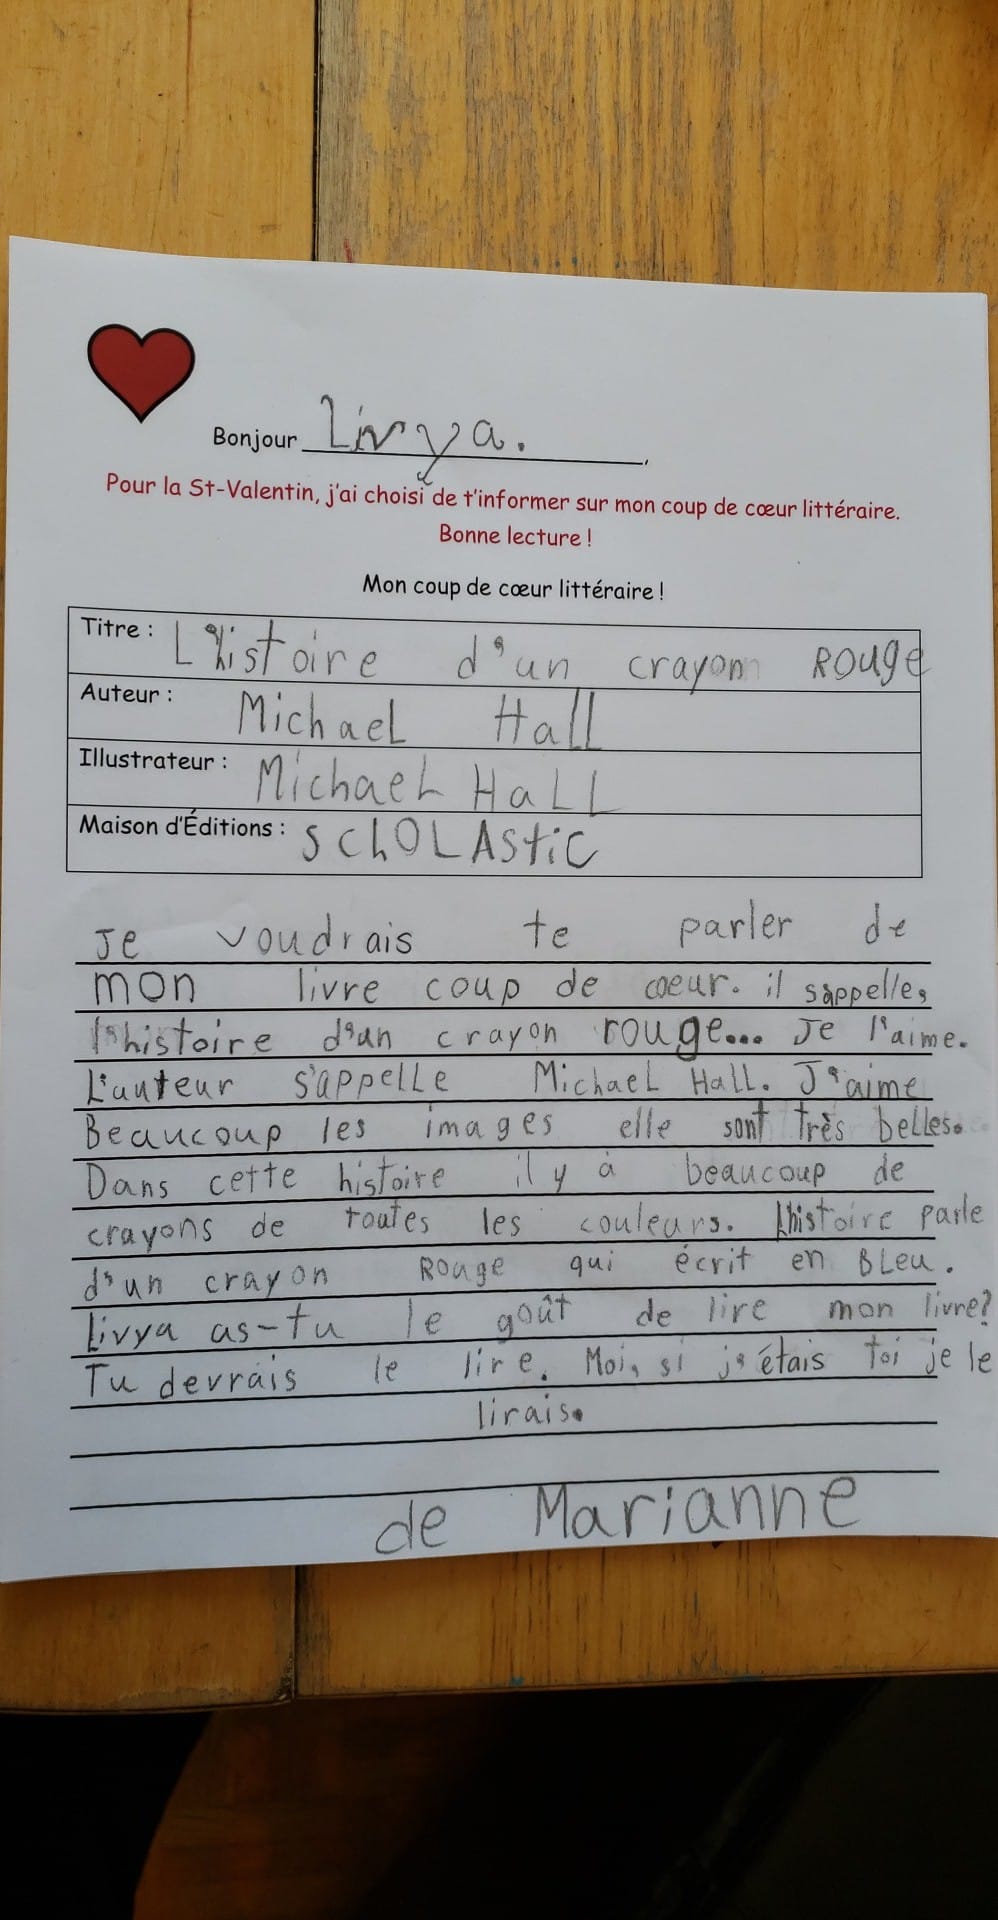 Bonjour Livya.,
Pour la St-Valentin, j'ai choisi de t'informer sur mon coup de cœur littéraire.
Bonne lecture !
Mon coup de cœur littéraire !
Titre : L'histoire d'un crayon ROUGE
Auteur : MichaeL Hall
Illustrateur : MichaeL HaLL
Maison d'Éditions : SChOLAStiC
Je voudrais te parler de
mon livre coup de coeur. il s'appelle,
l'histoire d'un crayon rouge... Je l'aime.
L'auteur s'appeLLe MichaeL Hall. J'aime
Beaucoup les images elle sont très belles.
Dans cette histoire il y à beaucoup de
crayons de toutes les couleurs. L'histoire parle
d'un crayon Rouge qui écrit en BLeu.
Livya as-tu le goût de lire mon livre?
Tu devrais le lire. Moi, si j'étais toi je le
lirais.
de Marianne